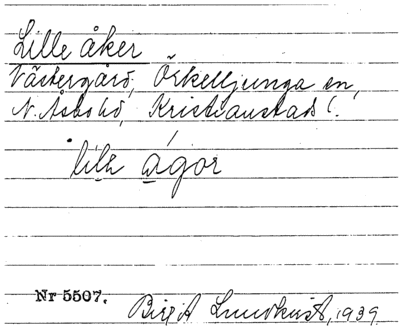 Lille åker
Västergård, Örkelljunga sn,
N. Åsbo hd, Kristianstads l.
lila ágor
Nr 5507.
Birgit Lundkvist, 1939